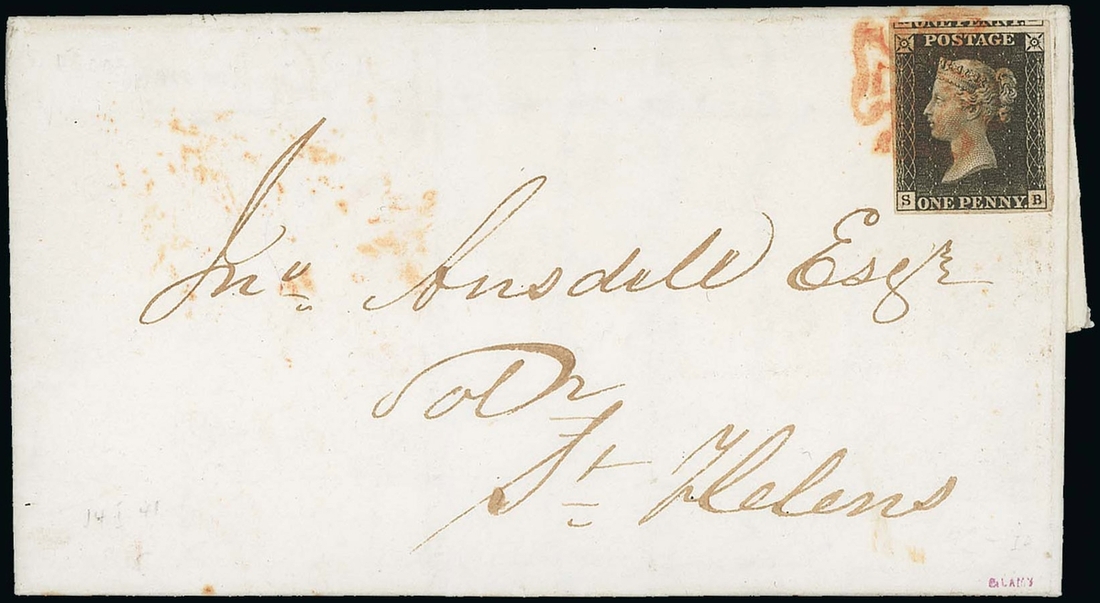 ONE PENNY
POSTAGE
S ONE PENNY B
Jno. Ansdell Esqr
Solr
St Helens
14 I 41